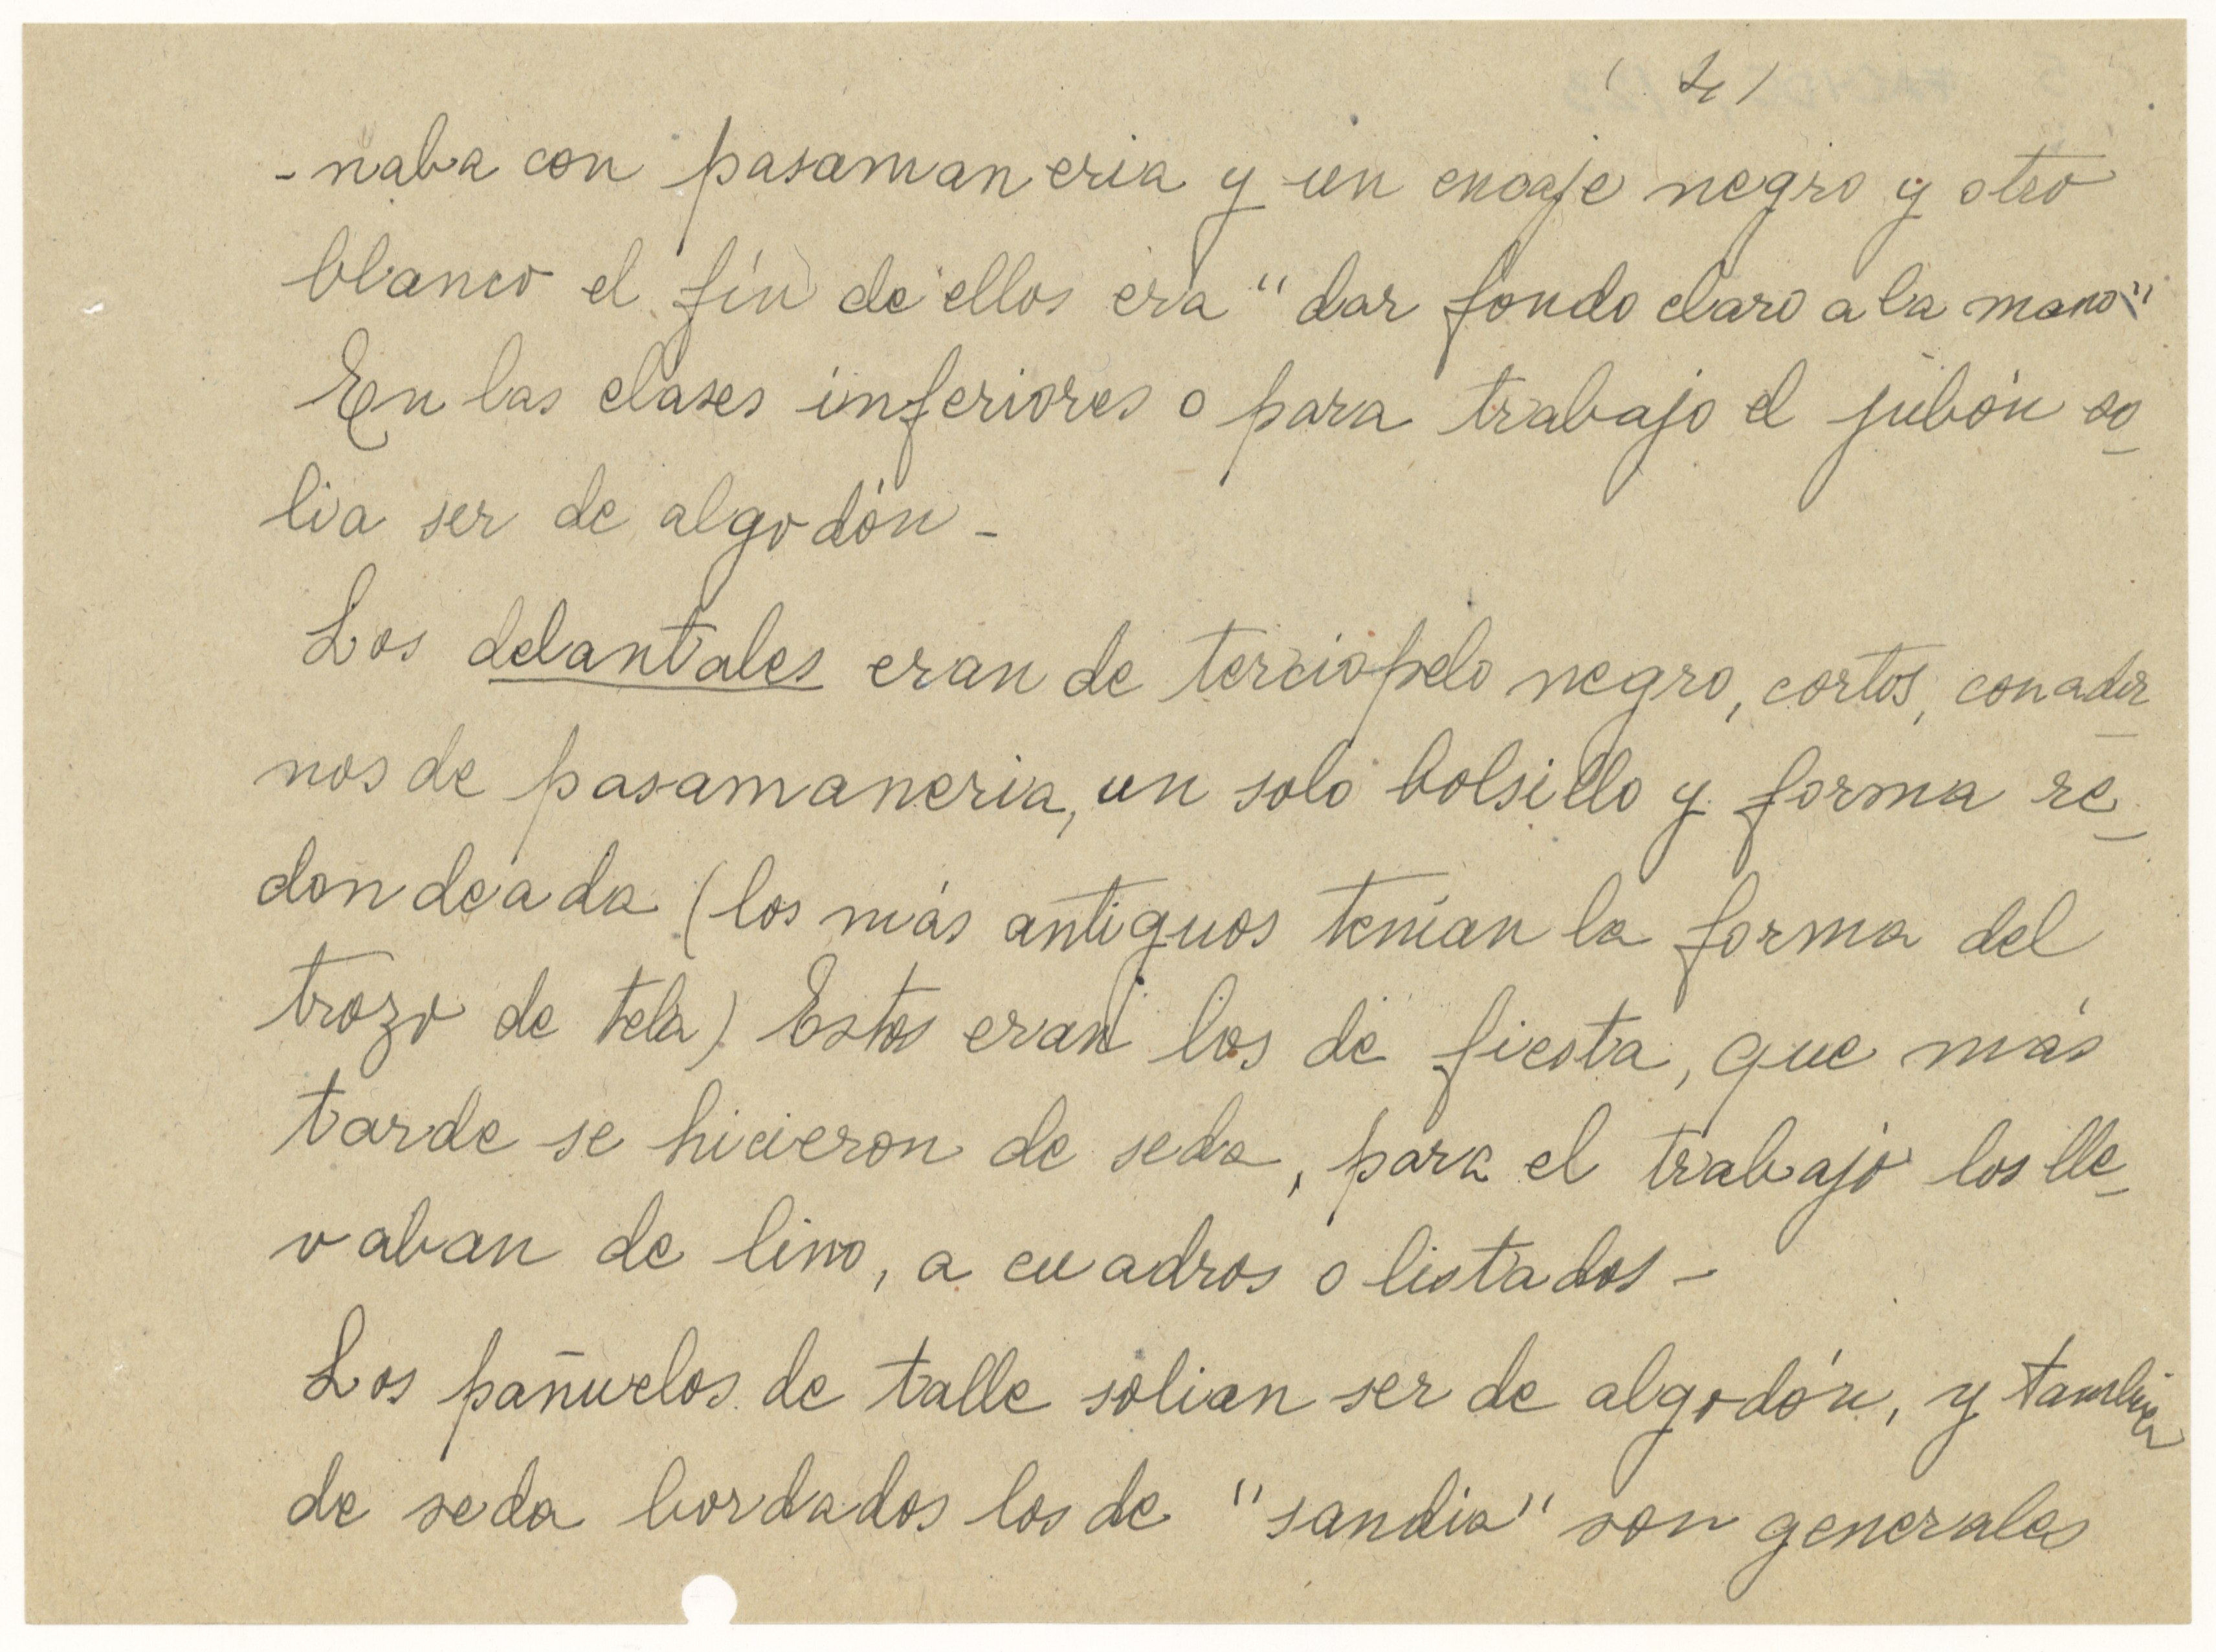 (4)
-naba con pasamaneria y un encaje negro y otro
blanco el fín de ellos era "dar fondo claro a la mano"
En las clases inferiores o para trabajo el jubón so
lia ser de algodón -
Los delantales eran de terciopelo negro, cortos, con ador
nos de pasamaneria, un solo bolsillo y forma re
dondeada (los más antiguos tenían la forma del
trozo de tela) Estos eran los de fiesta, que más
tarde se hicieron de seda, para el trabajo los lle
vaban de lino, a cuadros o listados -
Los pañuelos de talle solian ser de algodón, y tambien
de seda bordados los de "sandia" son generales